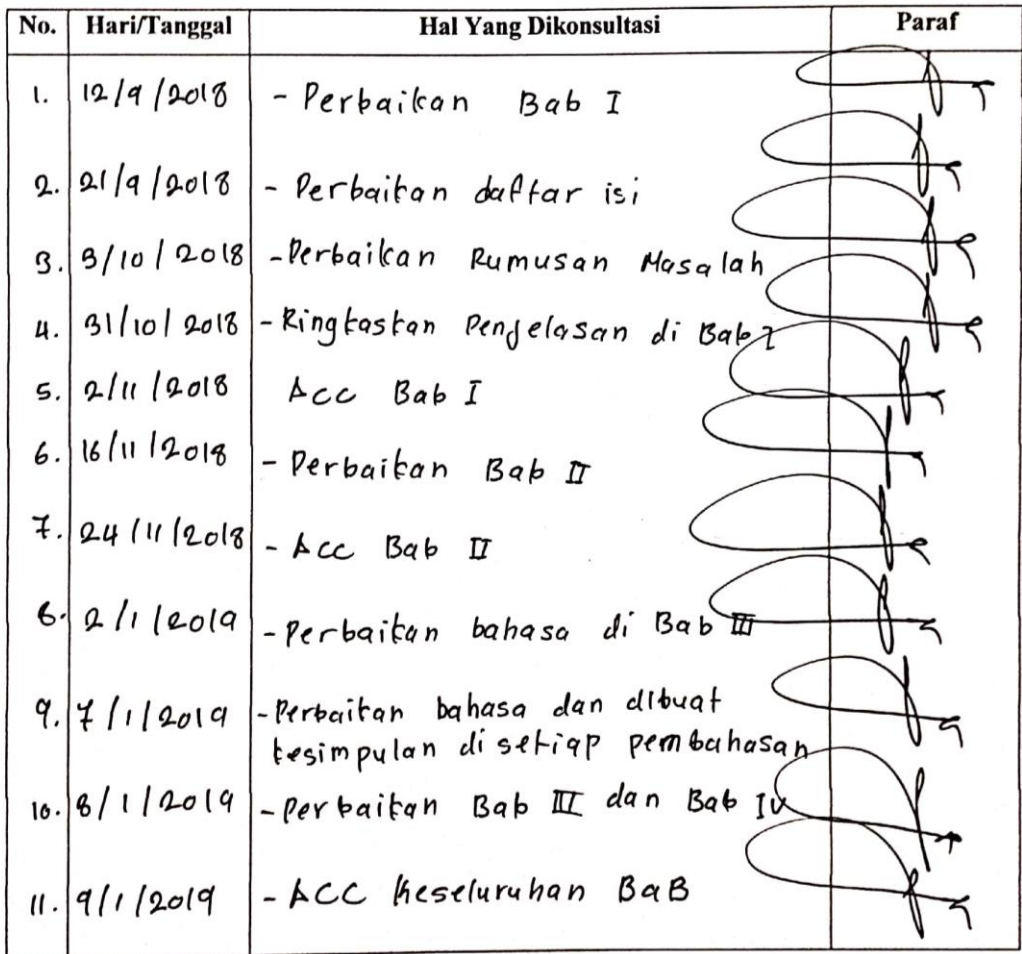 No. Hari/Tanggal Hal Yang Dikonsultasi Paraf
1. 12/9/2018 - Perbaikan Bab I
2. 21/9/2018 - Perbaikan daftar isi
3. 3/10/2018 - Perbaikan Rumusan Masalah
4. 31/10/2018 - Ringkaskan Penjelasan di Bab I
5. 2/11/2018 Acc Bab I
6. 16/11/2018 - Perbaikan Bab II
7. 24/11/2018 - Acc Bab II
8. 2/1/2019 - Perbaikan bahasa di Bab III
9. 7/1/2019 - Perbaikan bahasa dan dibuat
kesimpulan di setiap pembahasan
10. 8/1/2019 - Perbaikan Bab III dan Bab IV
11. 9/1/2019 - ACC Keseluruhan BaB